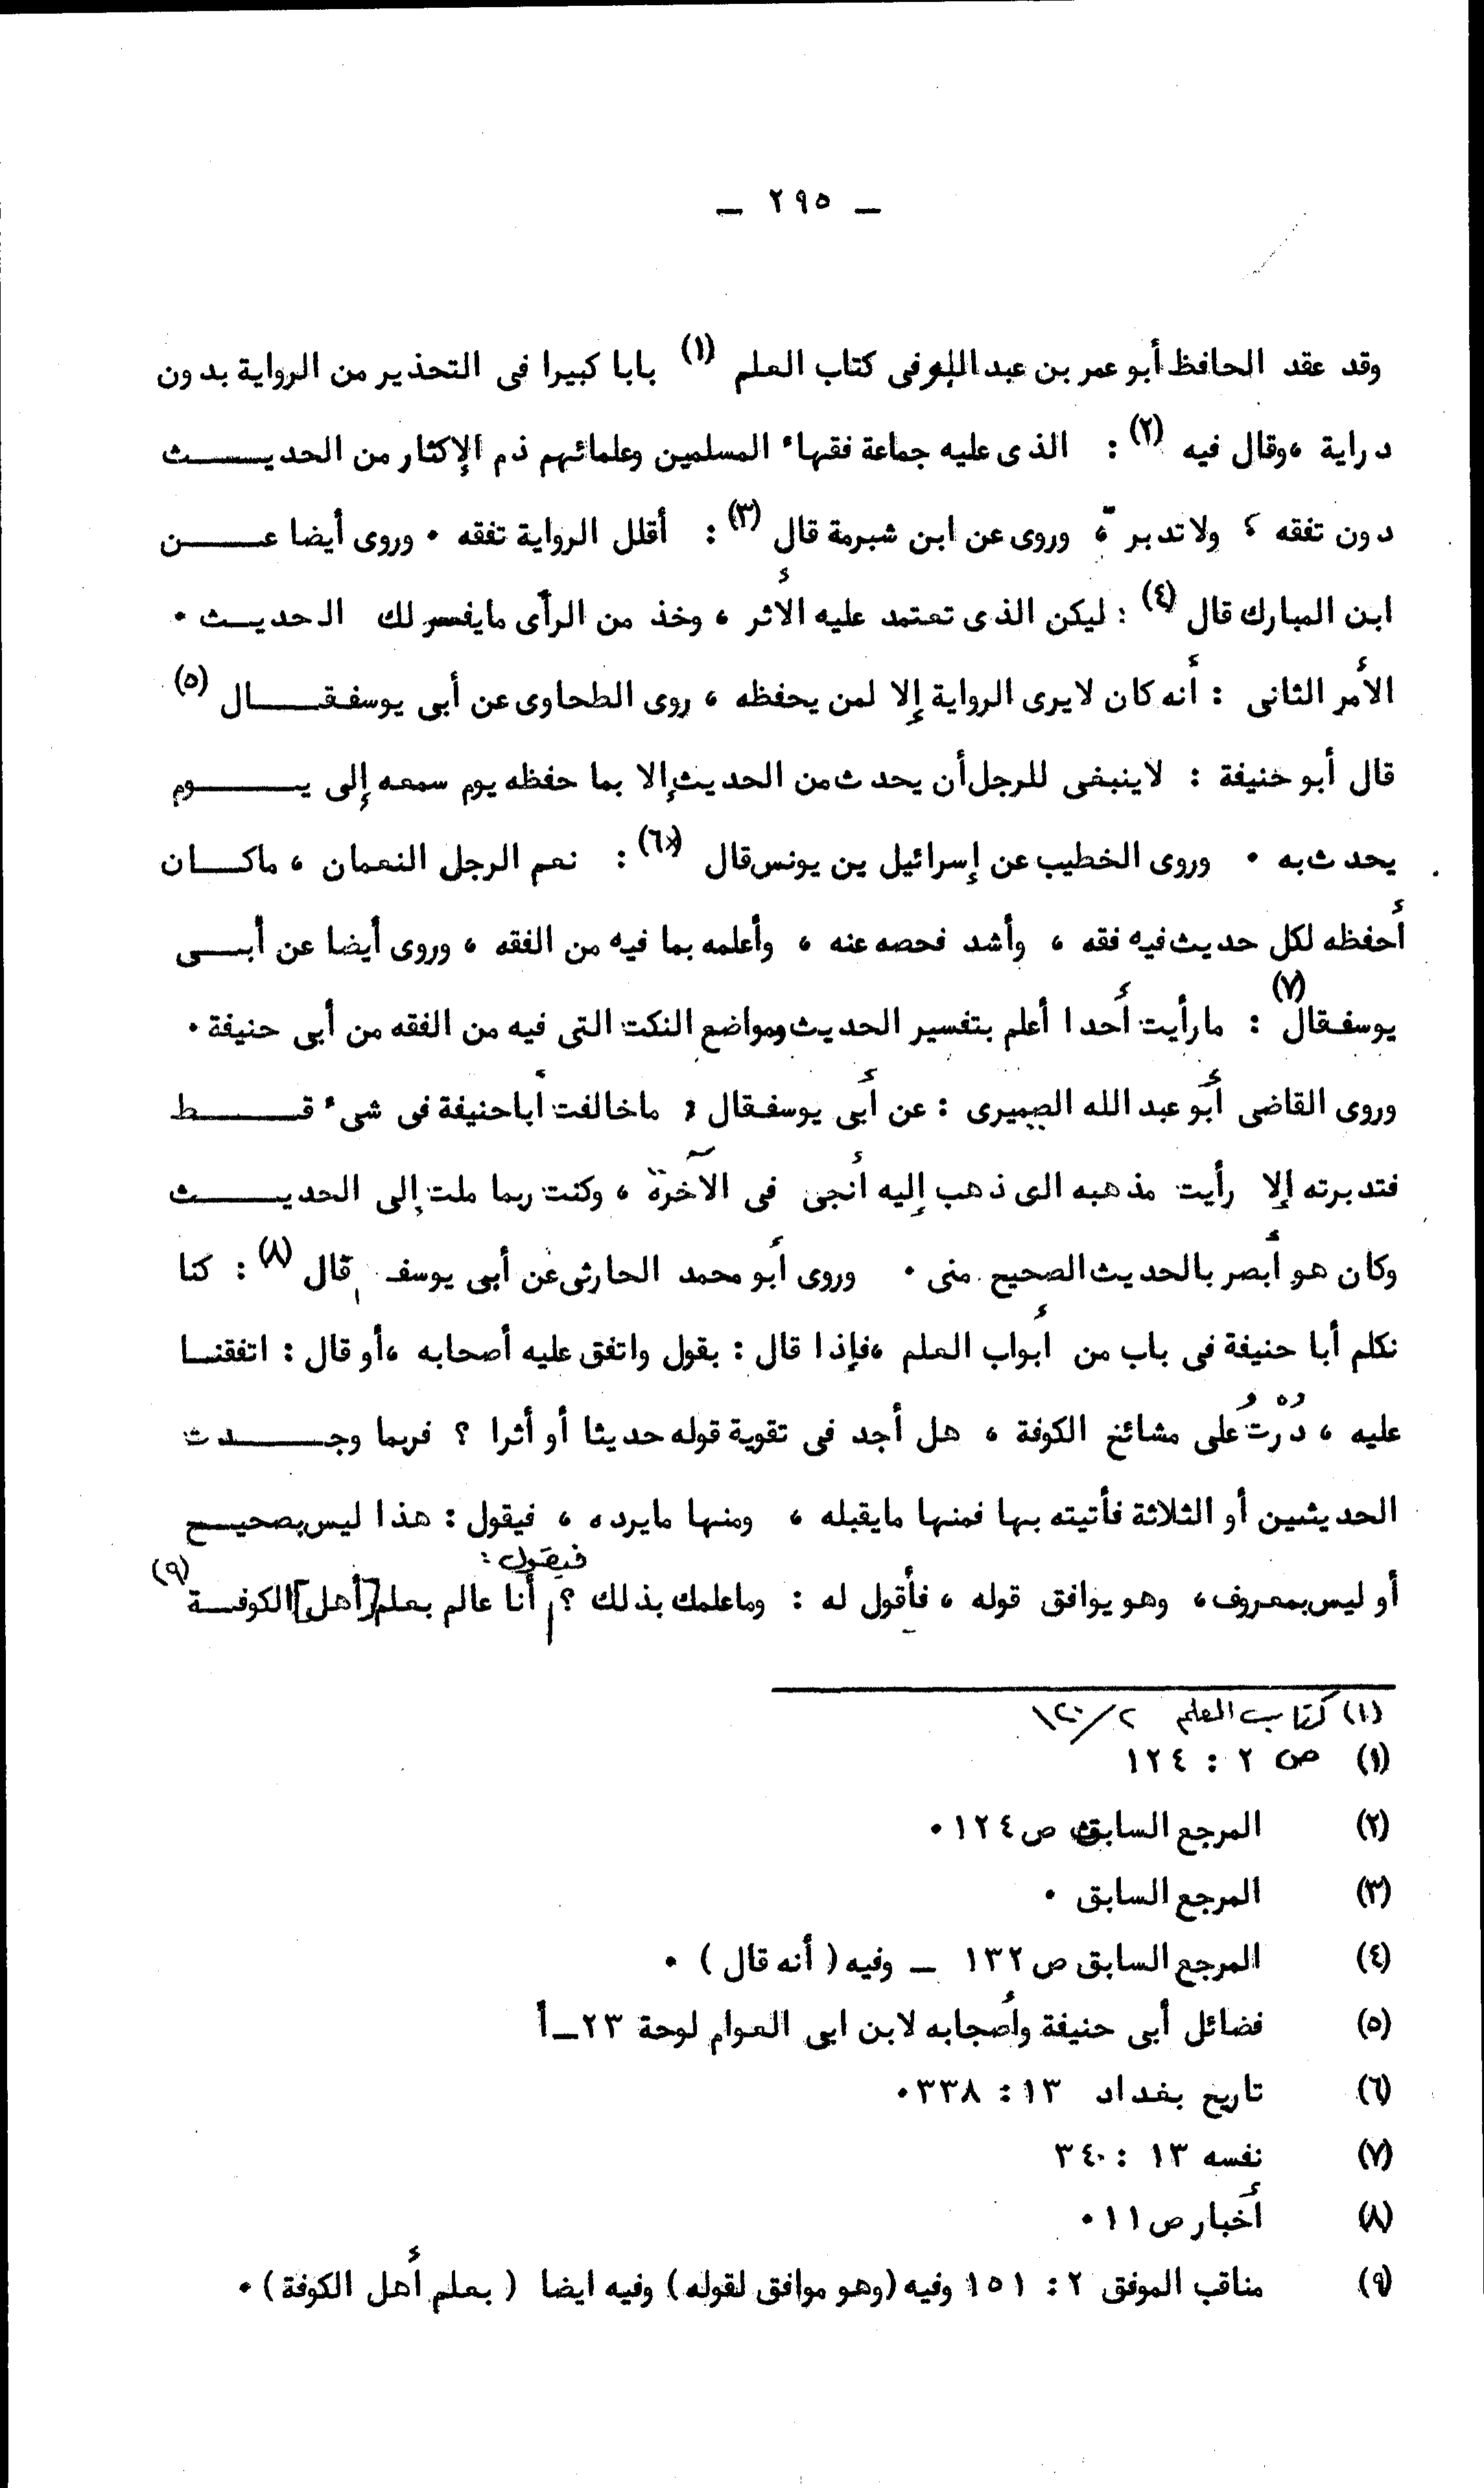 ـ ٢٩٥ ـ
وقد عقد الحافظ أبو عمر بن عبد البر في كتاب العلم (١) بابا كبيرا فى التحذير من الرواية بدون
دراية ، وقال فيه (٢) : الذى عليه جماعة فقهاء المسلمين وعلمائهم ذم الإكثار من الحديـــث
دون تفقه ، ولا تدبر ، وروى عن ابن شبرمة قال (٣) : أقلل الرواية تفقه . وروى أيضا عــن
ابن المبارك قال (٤) : ليكن الذى تعتمد عليه الأثر ، وخذ من الرأى مايفسر لك الحديث .
الأمر الثانى : أنه كان لايرى الرواية إلا لمن يحفظه ، روى الطحاوى عن أبى يوسف قـــال (٥)
قال أبو حنيفة : لاينبغى للرجل أن يحدث من الحديث إلا بما حفظه يوم سمعه إلى يـــوم
يحدث به . وروى الخطيب عن إسرائيل بن يونس قال (٦) : نعم الرجل النعمان ، ماكــان
أحفظه لكل حديث فيه فقه ، وأشد فحصه عنه ، وأعلمه بما فيه من الفقه ، وروى أيضا عن أبــى
يوسف قال (٧) : ما رأيت أحدا أعلم بتفسير الحديث ومواضع النكت التى فيه من الفقه من أبى حنيفة .
وروى القاضى أبو عبد الله الصيمرى : عن أبى يوسف قال : ماخالفت أبا حنيفة فى شىء قـــط
فتدبرته إلا رأيت مذهبه الى ذهب إليه أنجى فى الآخرة ، وكنت ربما ملت إلى الحديـــث
وكان هو أبصر بالحديث الصحيح منى . وروى أبو محمد الحارثى عن أبى يوسف قال (٨) : كنا
نكلم أبا حنيفة فى باب من أبواب العلم ، فإذا قال : بقول واتفق عليه أصحابه ، أو قال : اتفقنــا
عليه ، دُرْتُ على مشائخ الكوفة ، هل أجد فى تقوية قوله حديثا أو أثرا ؟ فربما وجـــدت
الحديثين أو الثلاثة فأتيته بها فمنها مايقبله ، ومنها مايرده ، فيقول : هذا ليس بصحيــح
أو ليس بمعروف ، وهو يوافق قوله ، فأقول له : وما علمك بذلك ؟ فيقول : أنا عالم بعلم [أهل] الكوفــة (٩)
(١) كتاب العلم ٢/١٢٠
(١) ص ٢ : ١٢٤
(٢) المرجع السابق ص ١٢٤ .
(٣) المرجع السابق .
(٤) المرجع السابق ص ١٣٢ ـ وفيه ( أنه قال ) .
(٥) فضائل أبى حنيفة وأصحابه لابن ابى العوام لوحة ٢٣ـ أ
(٦) تاريخ بغداد ١٣ : ٣٣٨ .
(٧) نفسه ١٣ : ٣٤٠
(٨) أخبار ص ١١ .
(٩) مناقب الموفق ٢ : ١٥١ وفيه (وهو موافق لقوله) وفيه ايضا ( بعلم أهل الكوفة ) .